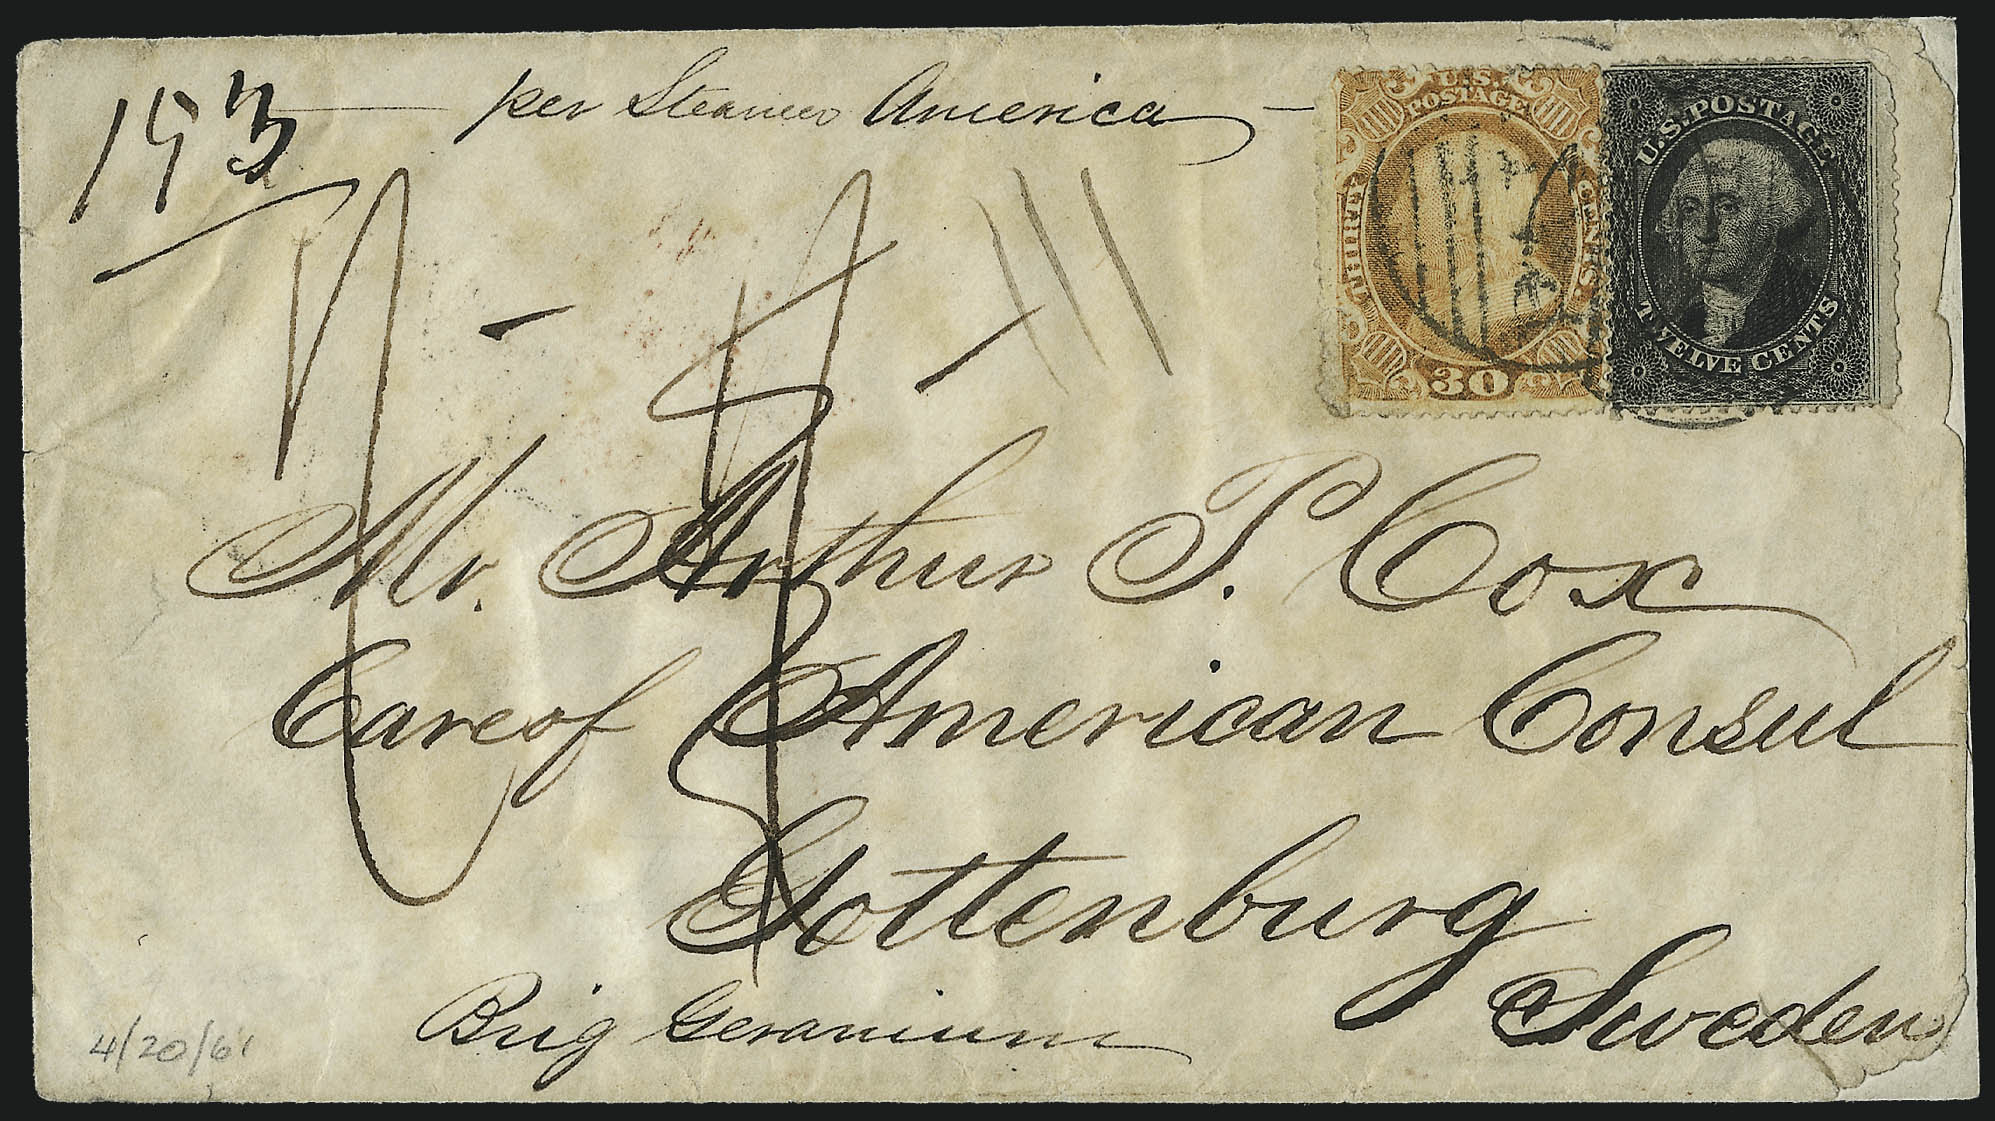 193
per Steamer America
U.S. POSTAGE
THIRTY CENTS.
30
U.S. POSTAGE
TWELVE CENTS
Mr. Arthur P. Cox
Care of American Consul
Gottenburg
Sweden
Brig Geranium
4/20/61